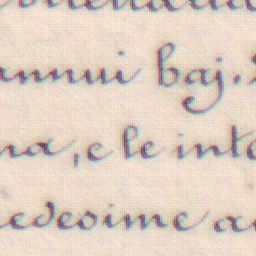 annui baj.
na, e le inte
edesime a